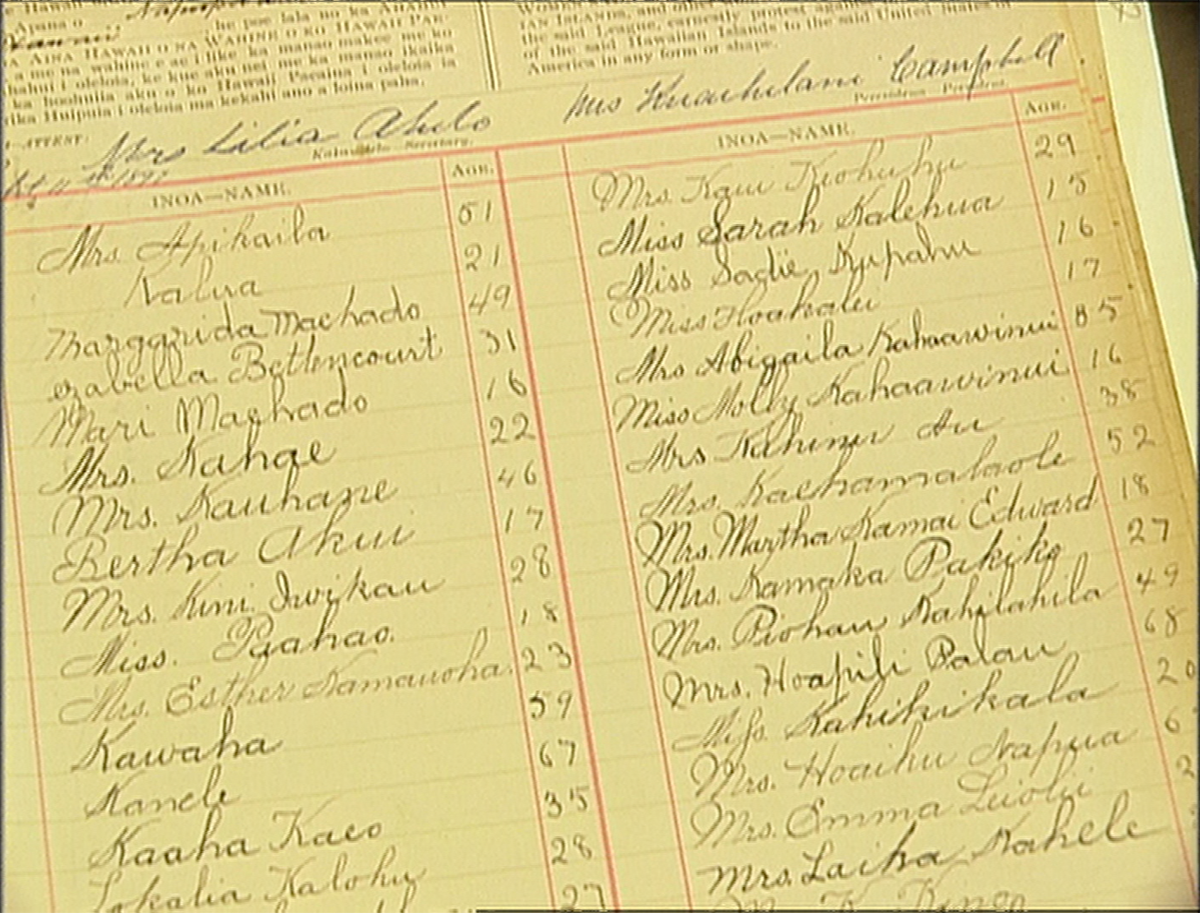 Apana o
he poe lala no ka Ahahui
AINA HAWAII O NA WAHINE O KO HAWAII PAE-
a me na wahine e ae i like ka manao makee me ko
hahui i oleloia, ke kue aku nei me ka manao ikaika
ka hoohuiia aku o ko Hawaii Paeaina i oleloia ia
rika Huipuia i oleloia ma kekahi ano a loina paha.
IAN ISLANDS, and
the said League, earnestly protest
of the said Hawaiian Islands to the said United States of
America in any form or shape.
ATTEST:
Mrs Lilia Aholo
Kakauolelo—Secretary.
Mrs Kuaihelani Campbell
Peresidena—President.
INOA—NAME. AGE.
Mrs. Apikaila 51
Kalua 21
Margarida Machado 49
Izabella Bettencourt 31
Mari Machado 16
Mrs. Kahae 22
Mrs. Kauhane 46
Bertha Akui 17
Mrs. Kini Iwikau 28
Miss. Paahao. 18
Mrs. Esther Kamauoha. 23
Kawaha 59
Kanele 67
Kaaha Kaeo 35
Lokalia Kalohu 28
27
INOA—NAME. AGE.
Mrs. Kaui Keohuhu 29
Miss Sarah Kalehua 15
Miss Sadie Kupahu 16
Miss Hoakalei 17
Mrs Abigaila Kahaawinui 35
Miss Molly Kahaawinui 16
Mrs Kahinu Au 38
Mrs. Kaehamalaole 52
Mrs. Martha Kamai Edward 18
Mrs. Kamaka Pakiko 27
Mrs. Piohau Kahilahila 49
Mrs. Hoapili Palau 68
Miss. Kahikikala 20
Mrs. Hoaiku Napua
Mrs. Emma Leiolii
Mrs. Laika Kahele